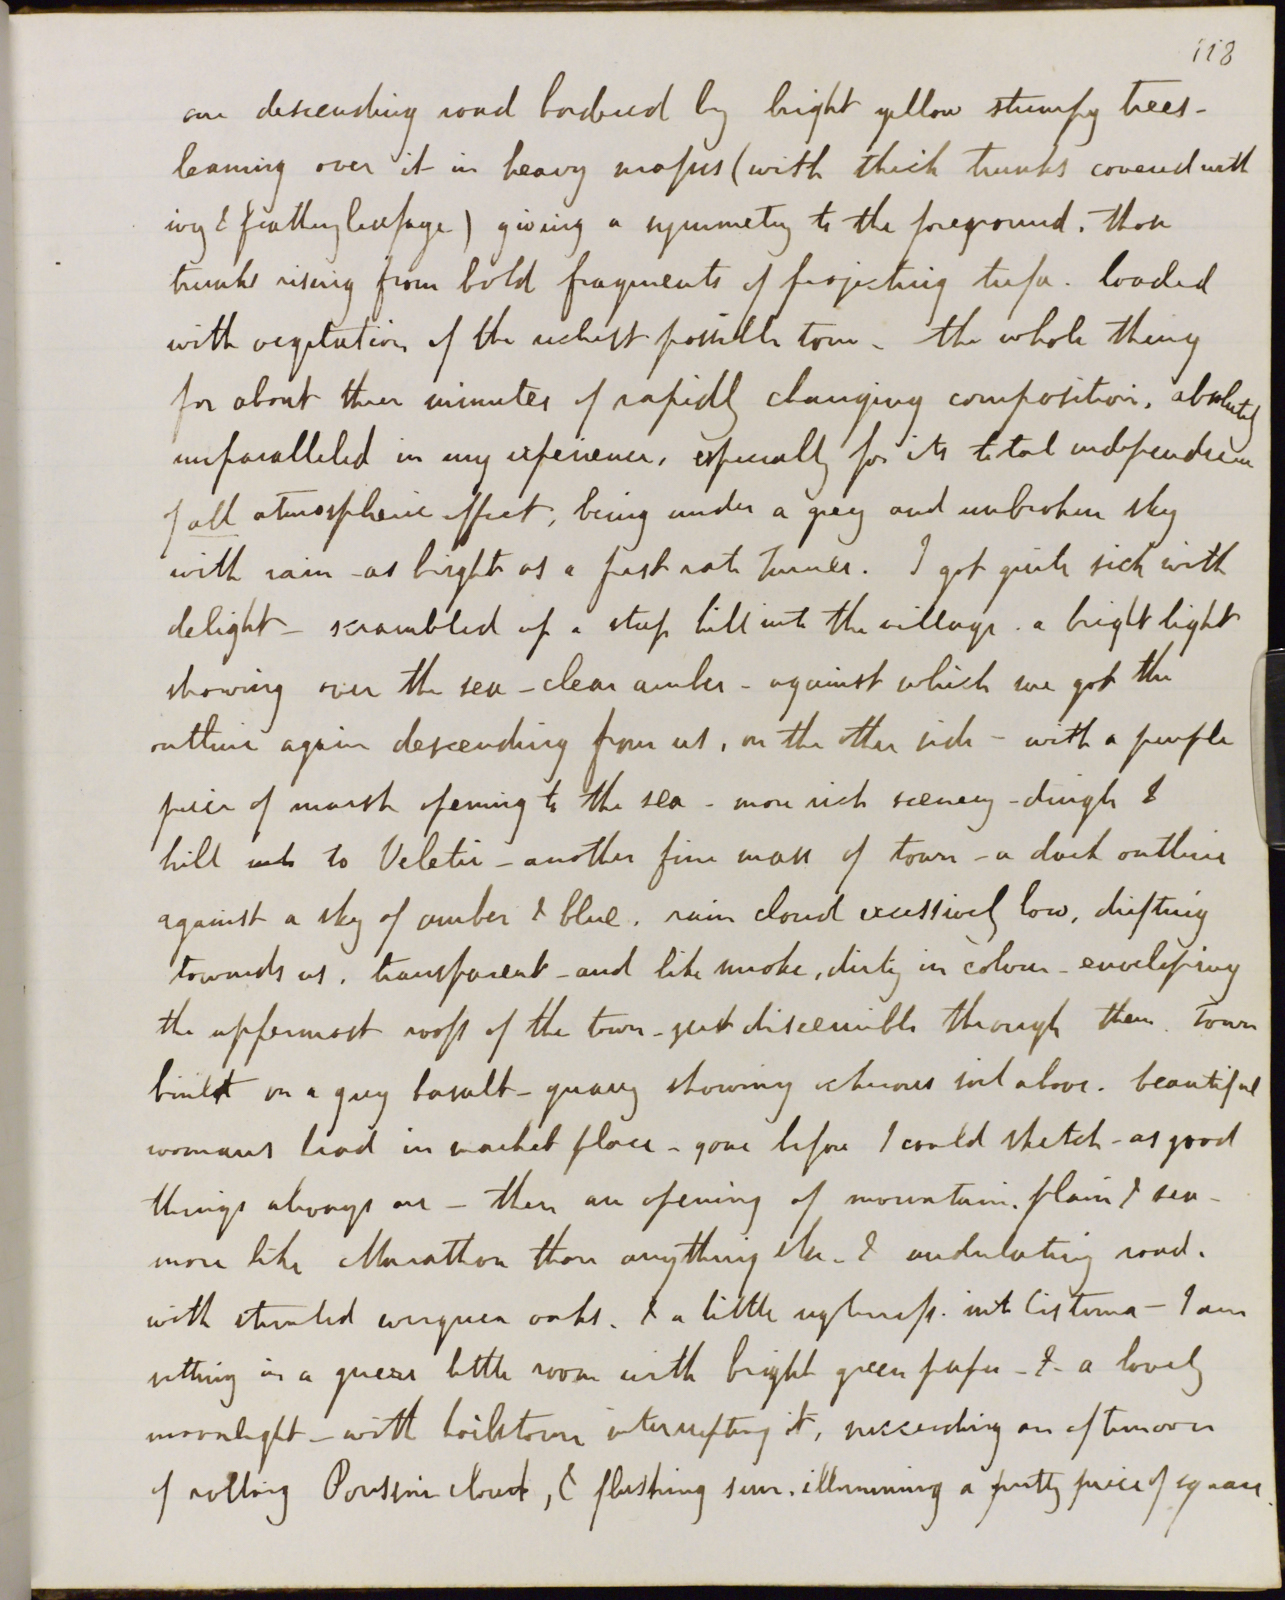 118
our descending road bordered by bright yellow stumpy trees -
leaning over it in heavy masses (with thick trunks covered with
ivy & feathery leafage) giving a symmetry to the foreground. their
trunks rising from bold fragments of projecting tufa. loaded
with vegetation of the richest possible tone - the whole thing
for about three minutes of rapidly changing composition. absolutely
unparalleled in my experience, especially for its total independence
of all atmospheric effect, being under a grey and unbroken sky
with rain - as bright as a first rate Turner. I got quite sick with
delight - scrambled up a steep hill into the village. a bright light
showing over the sea - clear amber - against which we got the
outline again descending from us, on the other side - with a purple
piece of marsh opening to the sea - more rich scenery - dingle &
hill into to Veletri - another fine mass of town - a dark outline
against a sky of amber & blue. rain cloud excessively low, drifting
towards us. transparent - and like smoke, dirty in colour - enveloping
the uppermost roofs of the town - just discernible through them. Town
built on a grey basalt - quarry showing ochreous soil above. beautiful
womans head in market place - gone before I could sketch - as good
things always are - then an opening of mountain. plain & sea -
more like Marathon than anything else - & undulating road.
with stunted evergreen oaks. & a little ugliness. into Cisterna - I am
sitting in a queer little room with bright green paper - & a lovely
moonlight - with hailstorm interrupting it, succeeding an afternoon
of rolling Poussin cloud, & flashing sun. illumining a pretty piece of square.